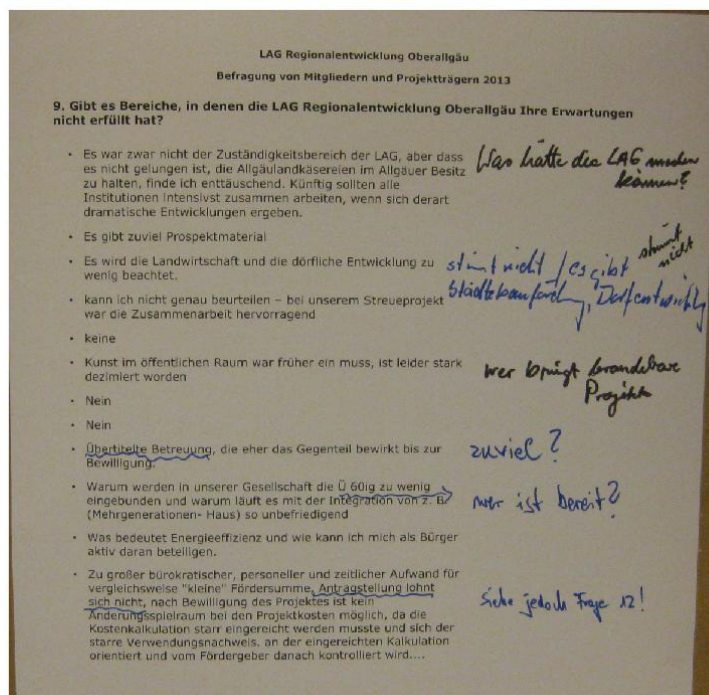 LAG Regionalentwicklung Oberallgäu
Befragung von Mitgliedern und Projektträgern 2013
9. Gibt es Bereiche, in denen die LAG Regionalentwicklung Oberallgäu Ihre Erwartungen
nicht erfüllt hat?
• Es war zwar nicht der Zuständigkeitsbereich der LAG, aber dass
es nicht gelungen ist, die Allgäulandkäsereien im Allgäuer Besitz
zu halten, finde ich enttäuschend. Künftig sollten alle
Institutionen intensivst zusammen arbeiten, wenn sich derart
dramatische Entwicklungen ergeben.
Was hätte die LAG machen
können?
• Es gibt zuviel Prospektmaterial
stimmt
nicht
• Es wird die Landwirtschaft und die dörfliche Entwicklung zu
wenig beachtet.
stimmt nicht / es gibt
Städtebauförderung, Dorfentwicklung
• kann ich nicht genau beurteilen – bei unserem Streueprojekt
war die Zusammenarbeit hervorragend
• keine
• Kunst im öffentlichen Raum war früher ein muss, ist leider stark
dezimiert worden
wer bringt
Projekte
• Nein
• Nein
• Übertitelte Betreuung, die eher das Gegenteil bewirkt bis zur
Bewilligung.
zuviel?
• Warum werden in unserer Gesellschaft die Ü 60ig zu wenig
eingebunden und warum läuft es mit der Integration von z. B.
(Mehrgenerationen- Haus) so unbefriedigend
wer ist bereit?
• Was bedeutet Energieeffizienz und wie kann ich mich als Bürger
aktiv daran beteiligen.
• Zu großer bürokratischer, personeller und zeitlicher Aufwand für
vergleichsweise "kleine" Fördersumme, Antragstellung lohnt
sich nicht, nach Bewilligung des Projektes ist kein
Änderungsspielraum bei den Projektkosten möglich, da die
Kostenkalkulation starr eingereicht werden musste und sich der
starre Verwendungsnachweis, an der eingereichten Kalkulation
orientiert und vom Fördergeber danach kontrolliert wird....
Siehe jedoch Frage 12!